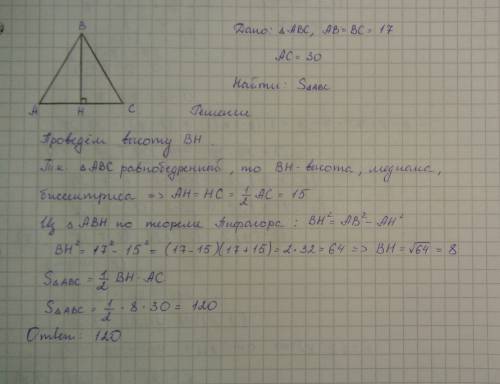 B
A H C
Дано: △ABC, AB=BC=17
AC=30
Найти: S△ABC
Решение
Проведём высоту BH.
Т.к. △ABC равнобедренный, то BH-высота, медиана,
биссектриса => AH=HC=1/2 AC=15
Из △ABH по теореме Пифагора: BH²=AB²-AH²
BH²=17²-15²=(17-15)(17+15)=2·32=64 => BH=√64=8
S△ABC=1/2 BH·AC
S△ABC=1/2·8·30=120
Ответ: 120